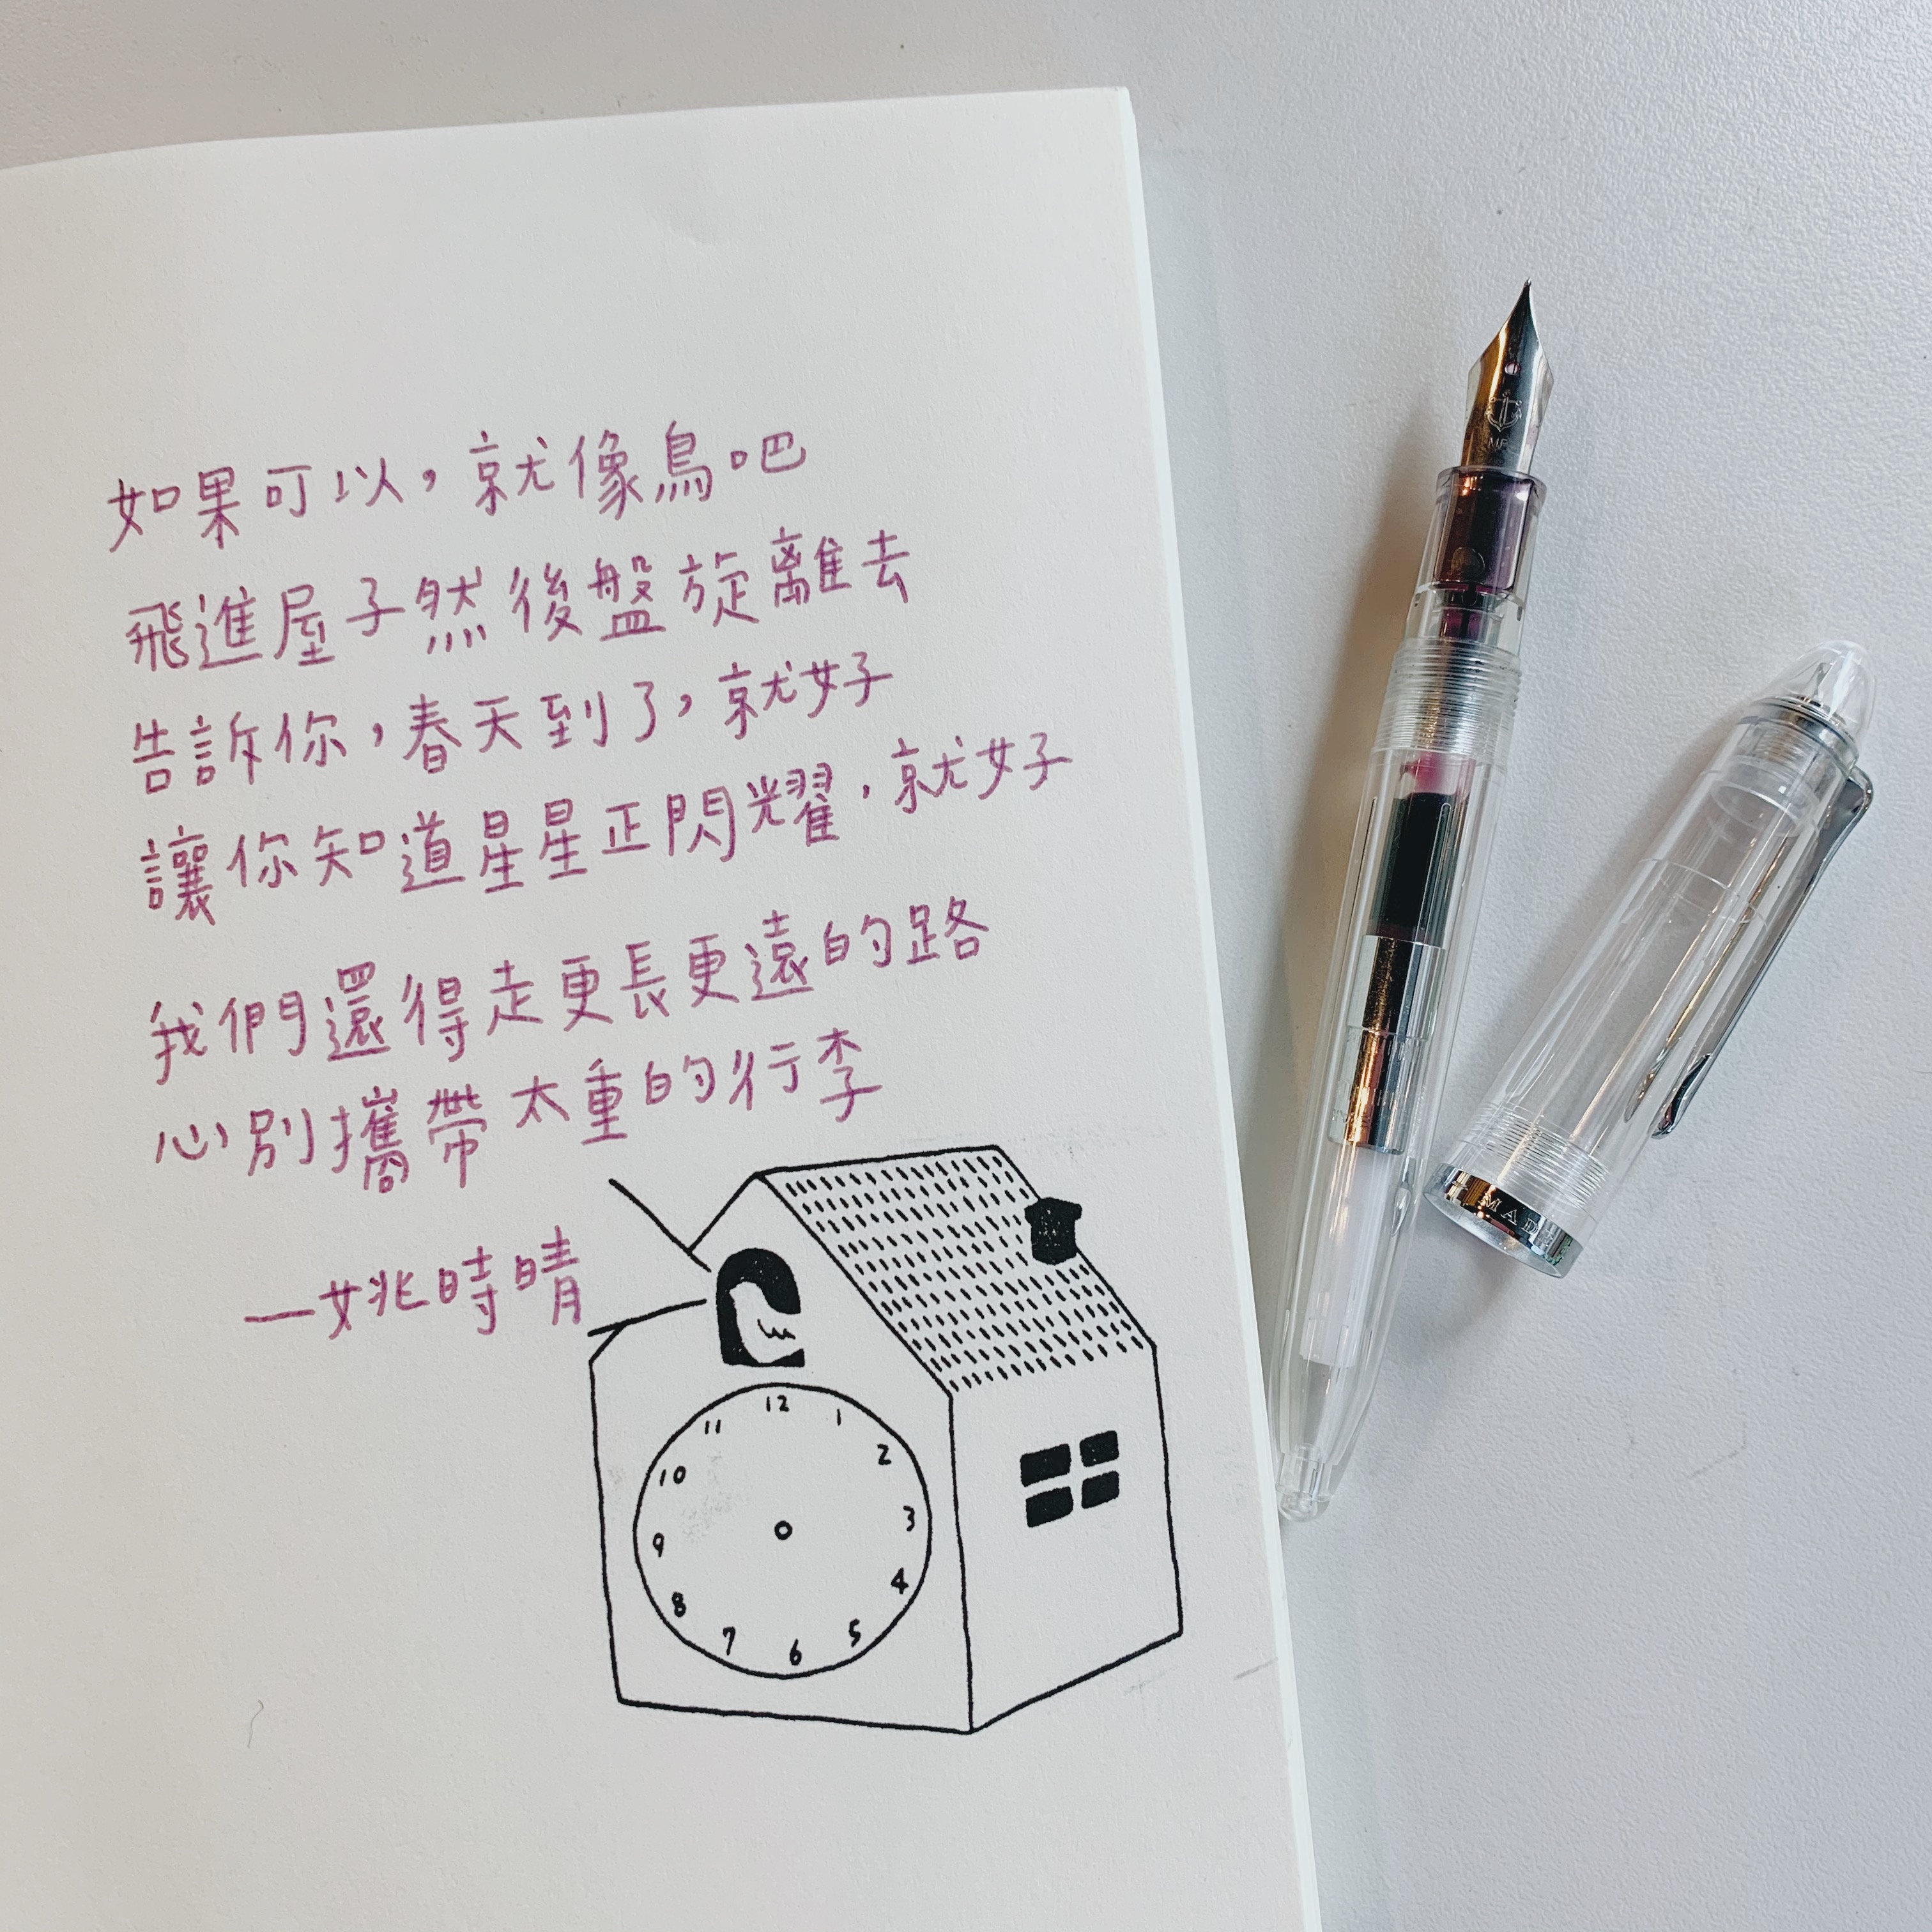 如果可以，就像鳥吧
飛進屋子然後盤旋離去
告訴你，春天到了，就好
讓你知道星星正閃耀，就好
我們還得走更長更遠的路
心別攜帶太重的行李
—姚時晴
12
1
2
3
4
5
6
7
8
9
10
11